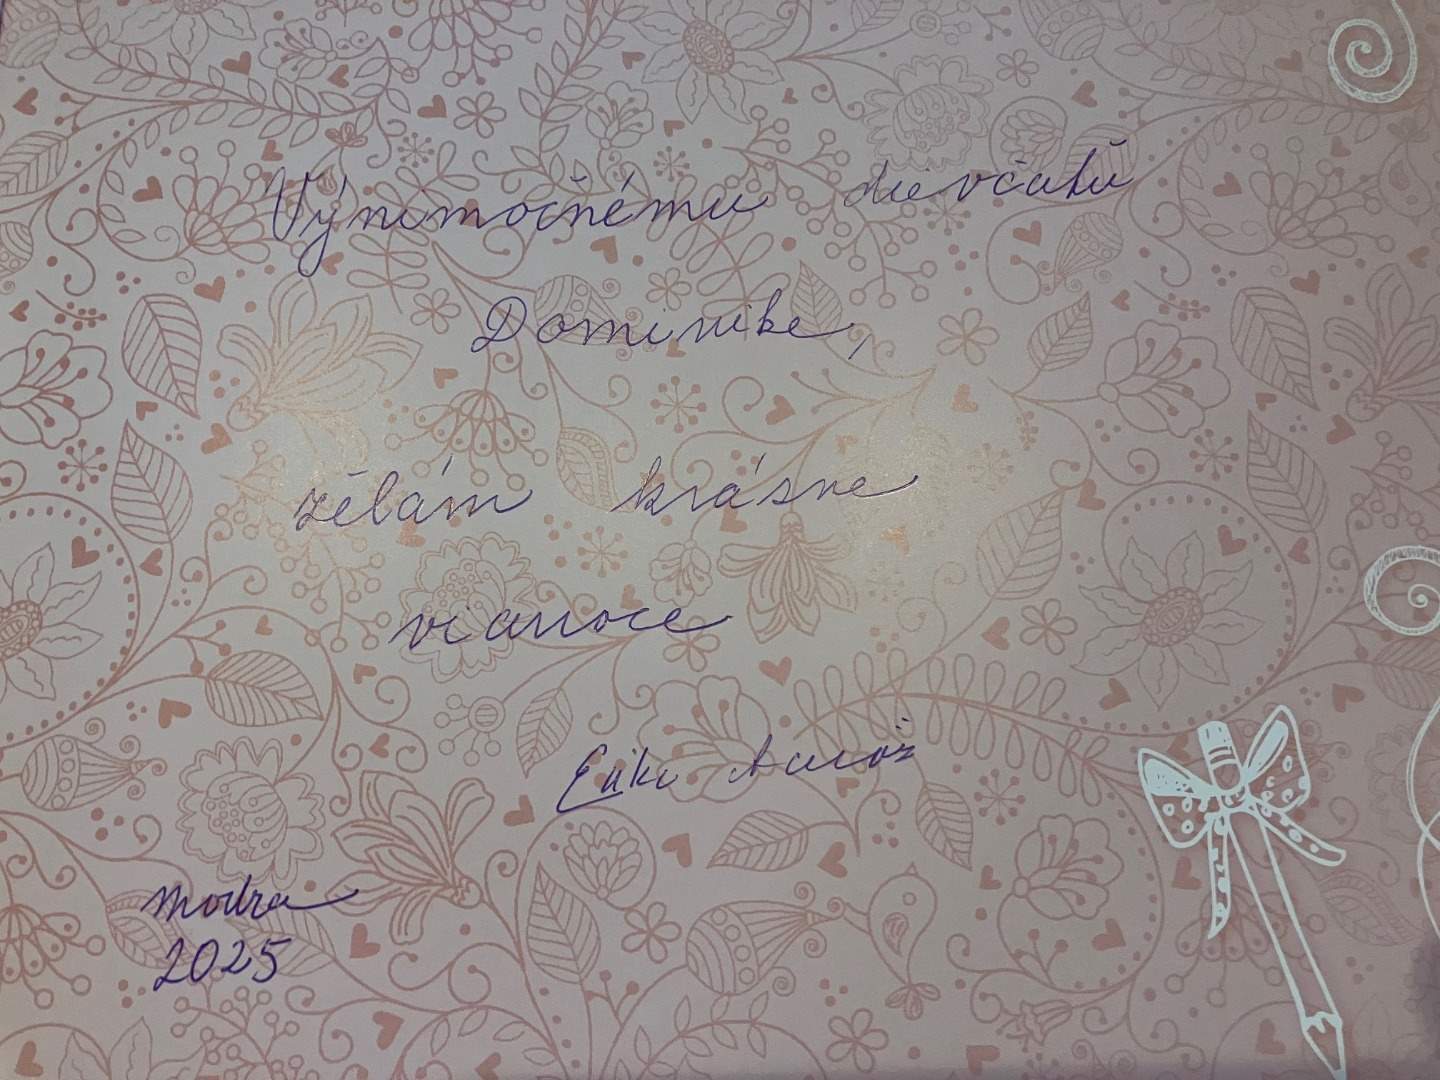 Výnimočnému dievčatú
Dominike,
zélám krásne
vianoce
Modra
2025